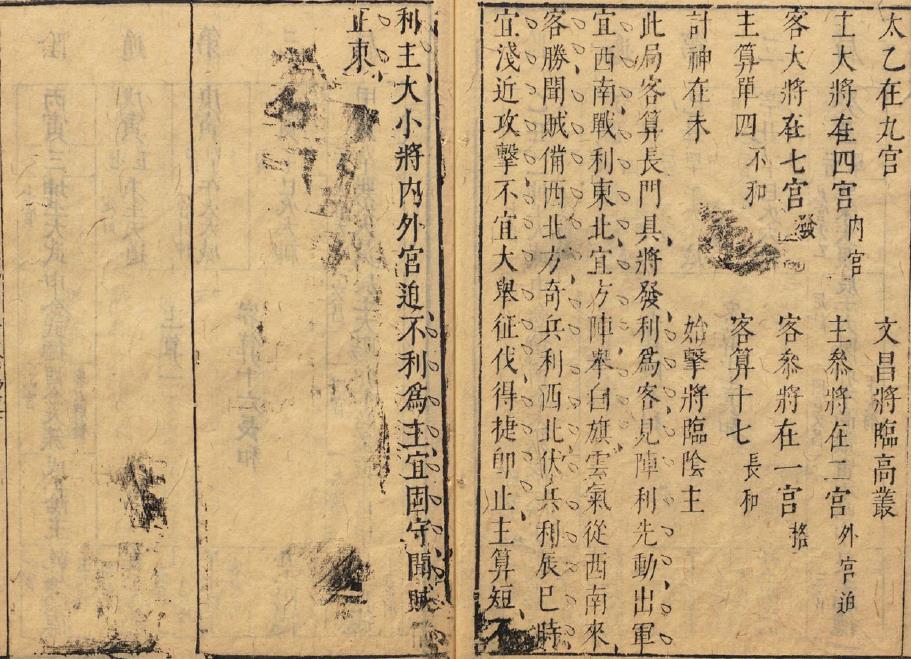 太乙在九宮 文昌將臨高叢
主大將在四宮 內宮 主參將在二宮 外宮迫
客大將在七宮 發 客參將在一宮 格
主算單四 不和 客算十七 長和
計神在未 始擊將臨陰主
此局客算長門具將發利為客見陣利先動出軍
宜西南戰利東北宜方陣舉白旗雲氣從西南來
客勝聞賊備西北方奇兵利西北伏兵利辰巳時
宜淺近攻擊不宜大舉征伐得捷卽止主算短不
利主大小將內外宮迫不利為主宜固守聞賊
正東